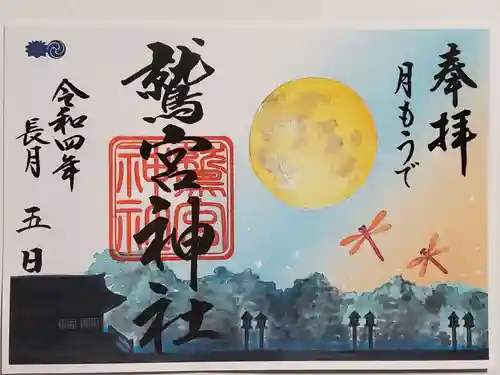 奉拝
月もうで
鷲宮神社
鷲宮神社
令和四年
長月 五日